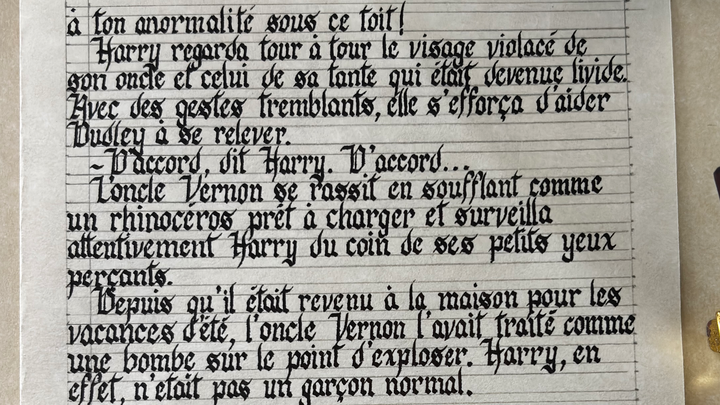 à ton anormalité sous ce toit!
Harry regarda tour à tour le visage violacé de
son oncle et celui de sa tante qui était devenue livide.
Avec des gestes tremblants, elle s'efforça d'aider
Dudley à se relever.
- D'accord, dit Harry. D'accord...
L'oncle Vernon se rassit en soufflant comme
un rhinocéros prêt à charger et surveilla
attentivement Harry du coin de ses petits yeux
perçants.
Depuis qu'il était revenu à la maison pour les
vacances d'été, l'oncle Vernon l'avait traité comme
une bombe sur le point d'exploser. Harry, en
effet, n'était pas un garçon normal.